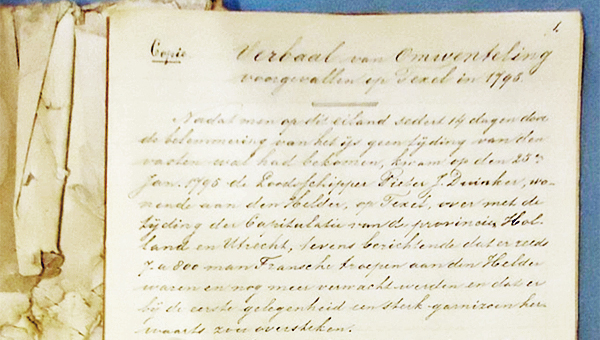 1.
Copie Verbaal van Omwenteling
voorgevallen op Texel in 1795.
Nadat men op dit eiland sedert 14 dagen door
de belemmering van het ijs geen tijding van den
vasten wal had bekomen, kwam op den 25n
Jan. 1795 de Loodsschipper Pieter J. Duinker, wo-
nende aan den Helder, op Texel, over met de
tijding der Capitulatie van de provincie Hol-
land en Utrecht, tevens berichtende dat er reeds
7 a 800 man Fransche troepen aan den Helder
waren en nog meer verwacht werden en dat er
bij de eerste gelegenheid een sterk garnizoen her-
waarts zou oversteken.